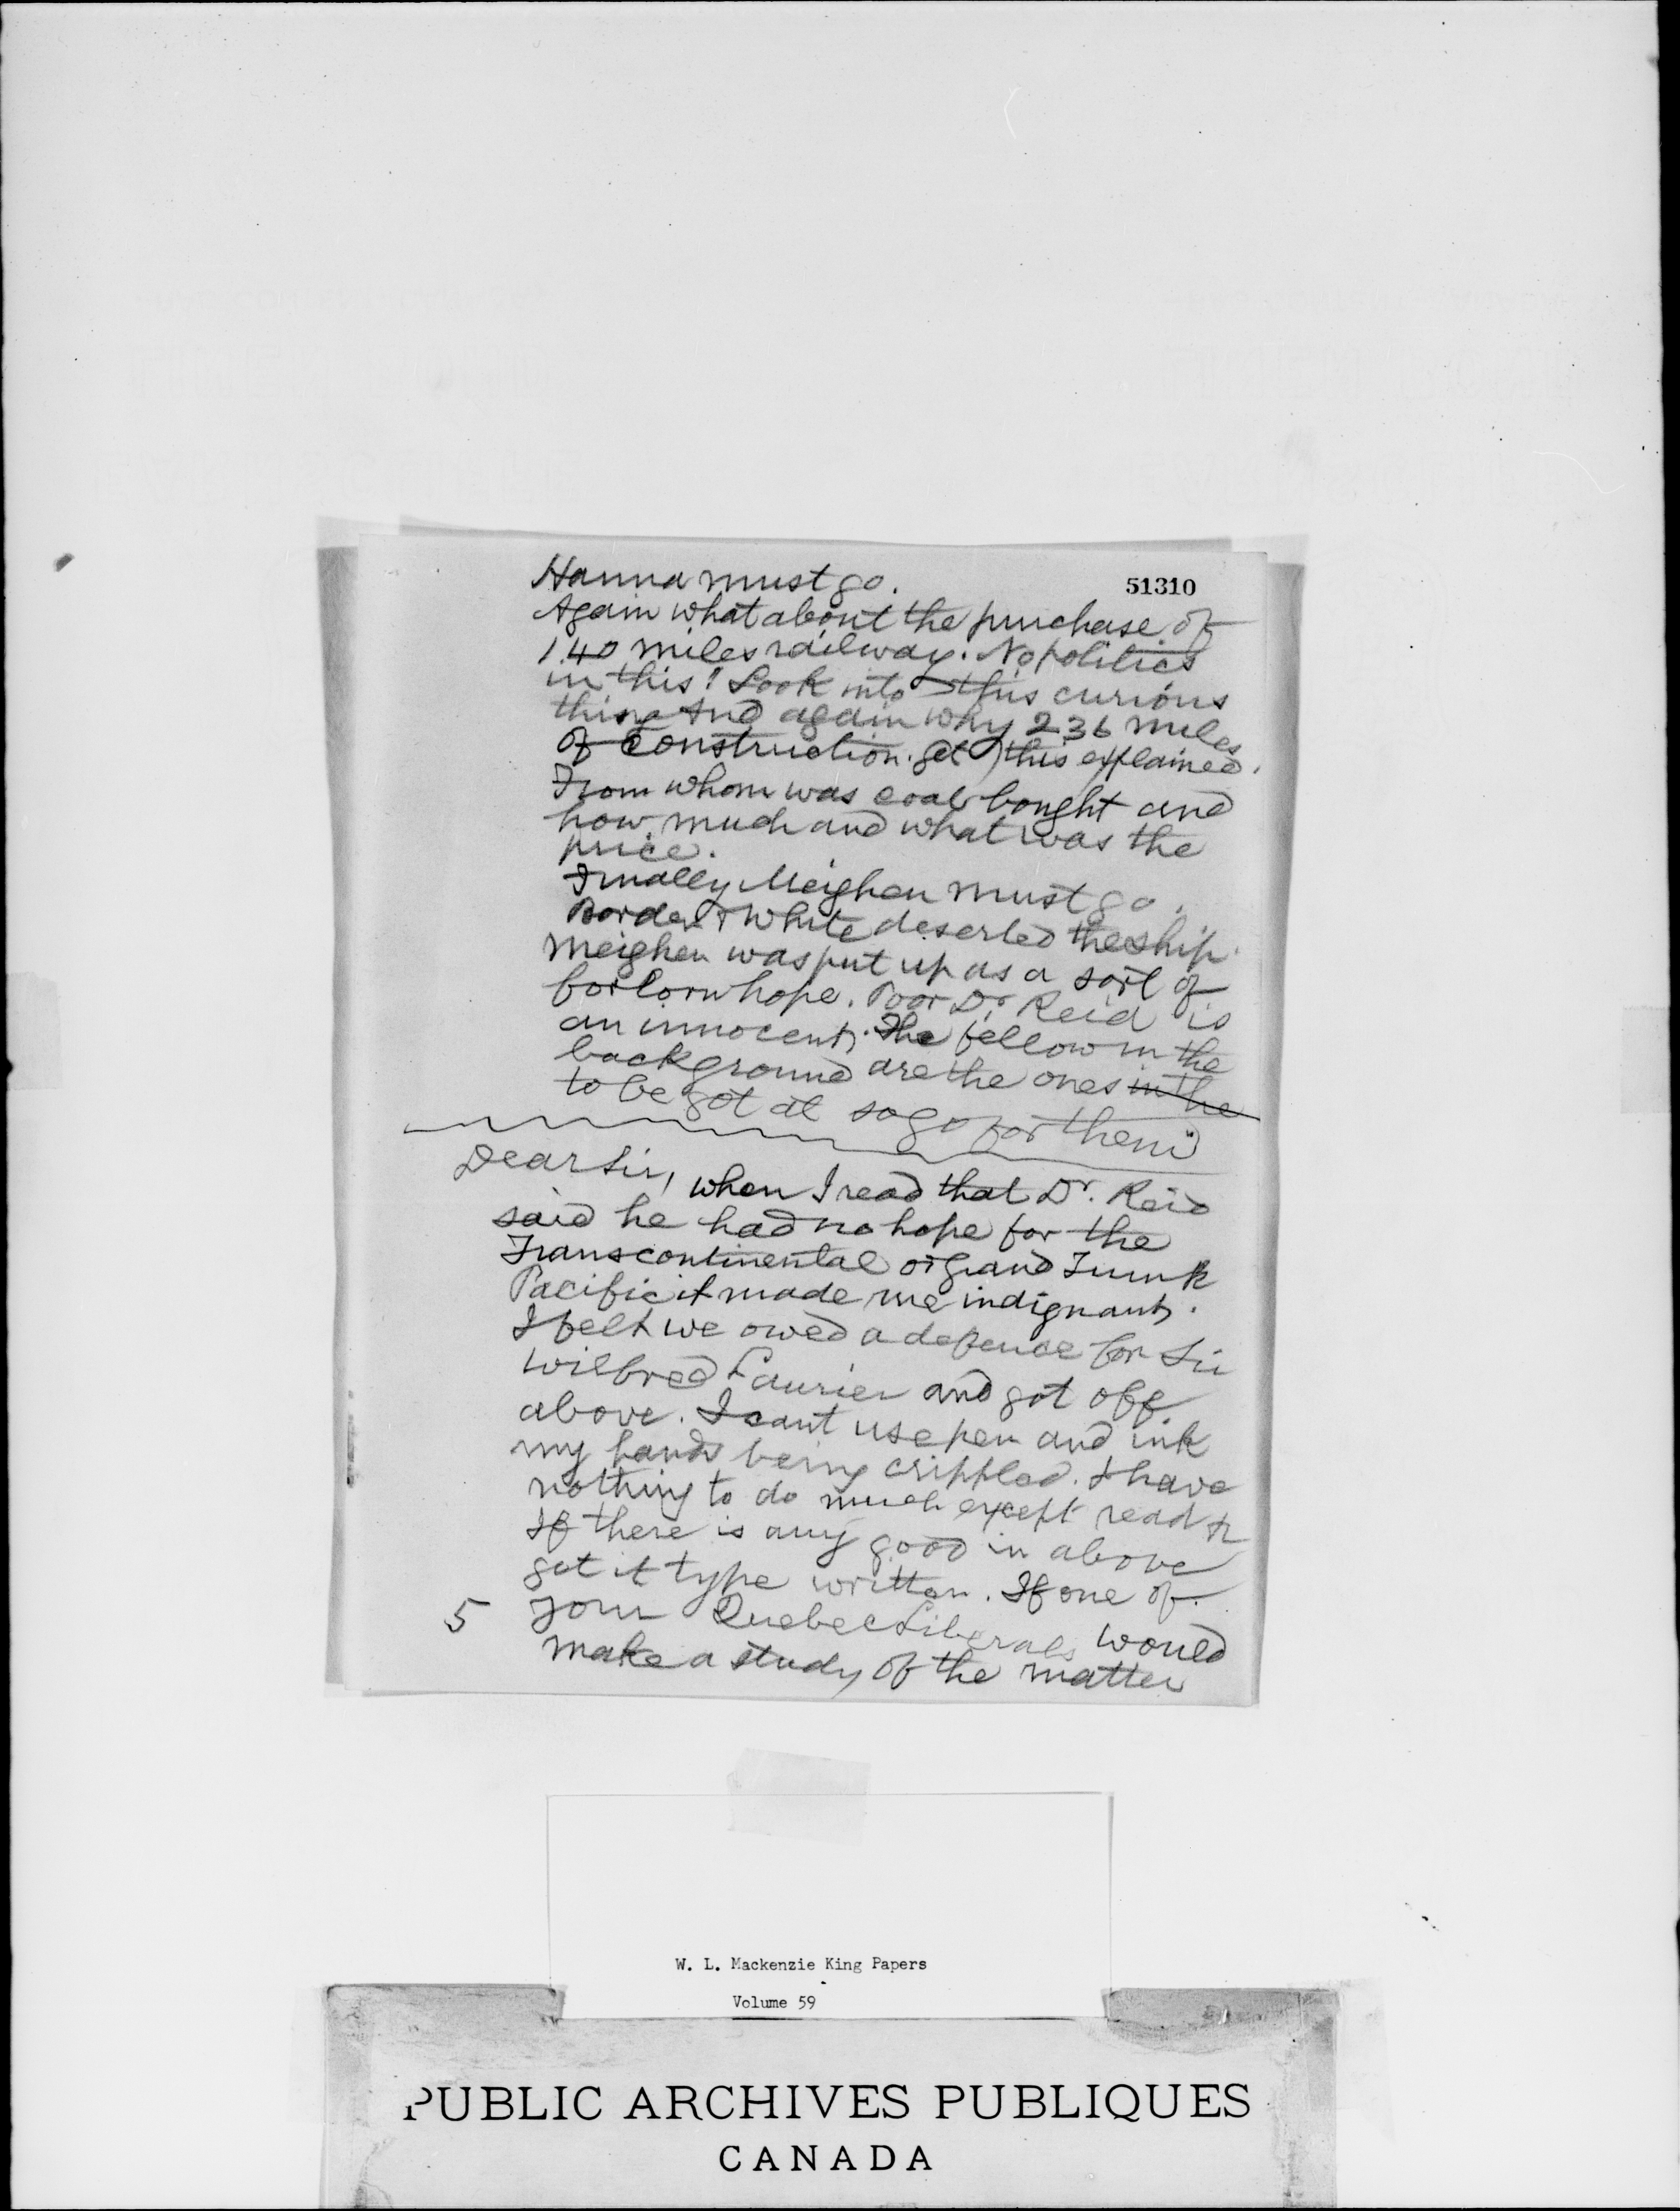 51310
Hanna must go.
Again what about the purchase of
140 miles railway. No politics
in this! Look into this curious
thing And again why 236 miles
of construction. get this explained.
From whom was coal bought and
how much and what was the
price.
Finally Meighen must go.
Borden & White deserted the ship.
Meighen was put up as a sort of
forlorn hope. Poor Dr. Reid is
an innocent. The fellow in the
background are the ones in the
to be got at so go for them"
Dear Sir, when I read that Dr. Reid
said he had no hope for the
Transcontinental or Grand Trunk
Pacific it made me indignant.
I felt we owed a defence for Sir
Wilfred Laurier and got off
above. I cant use pen and ink
my hands being crippled. I have
nothing to do much except read &
If there is any good in above
get it type written. If one of
5 your Quebec Liberals would
make a study of the matter
W. L. Mackenzie King Papers
Volume 59
PUBLIC ARCHIVES PUBLIQUES
CANADA